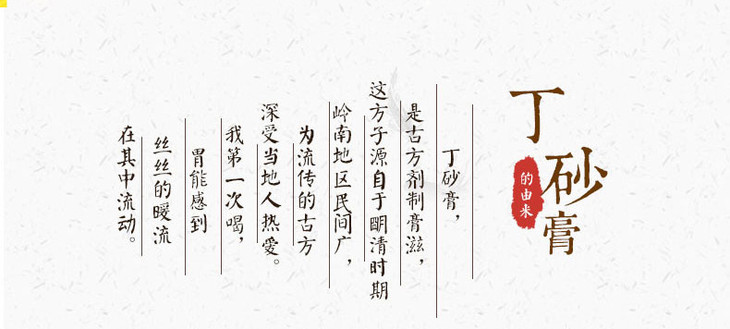 丁砂膏
的由来
丁砂膏，
是古方剂制膏滋，
这方子源自于明清时期
岭南地区民间广，
为流传的古方
深受当地人热爱。
我第一次喝，
胃能感到
丝丝的暖流
在其中流动。